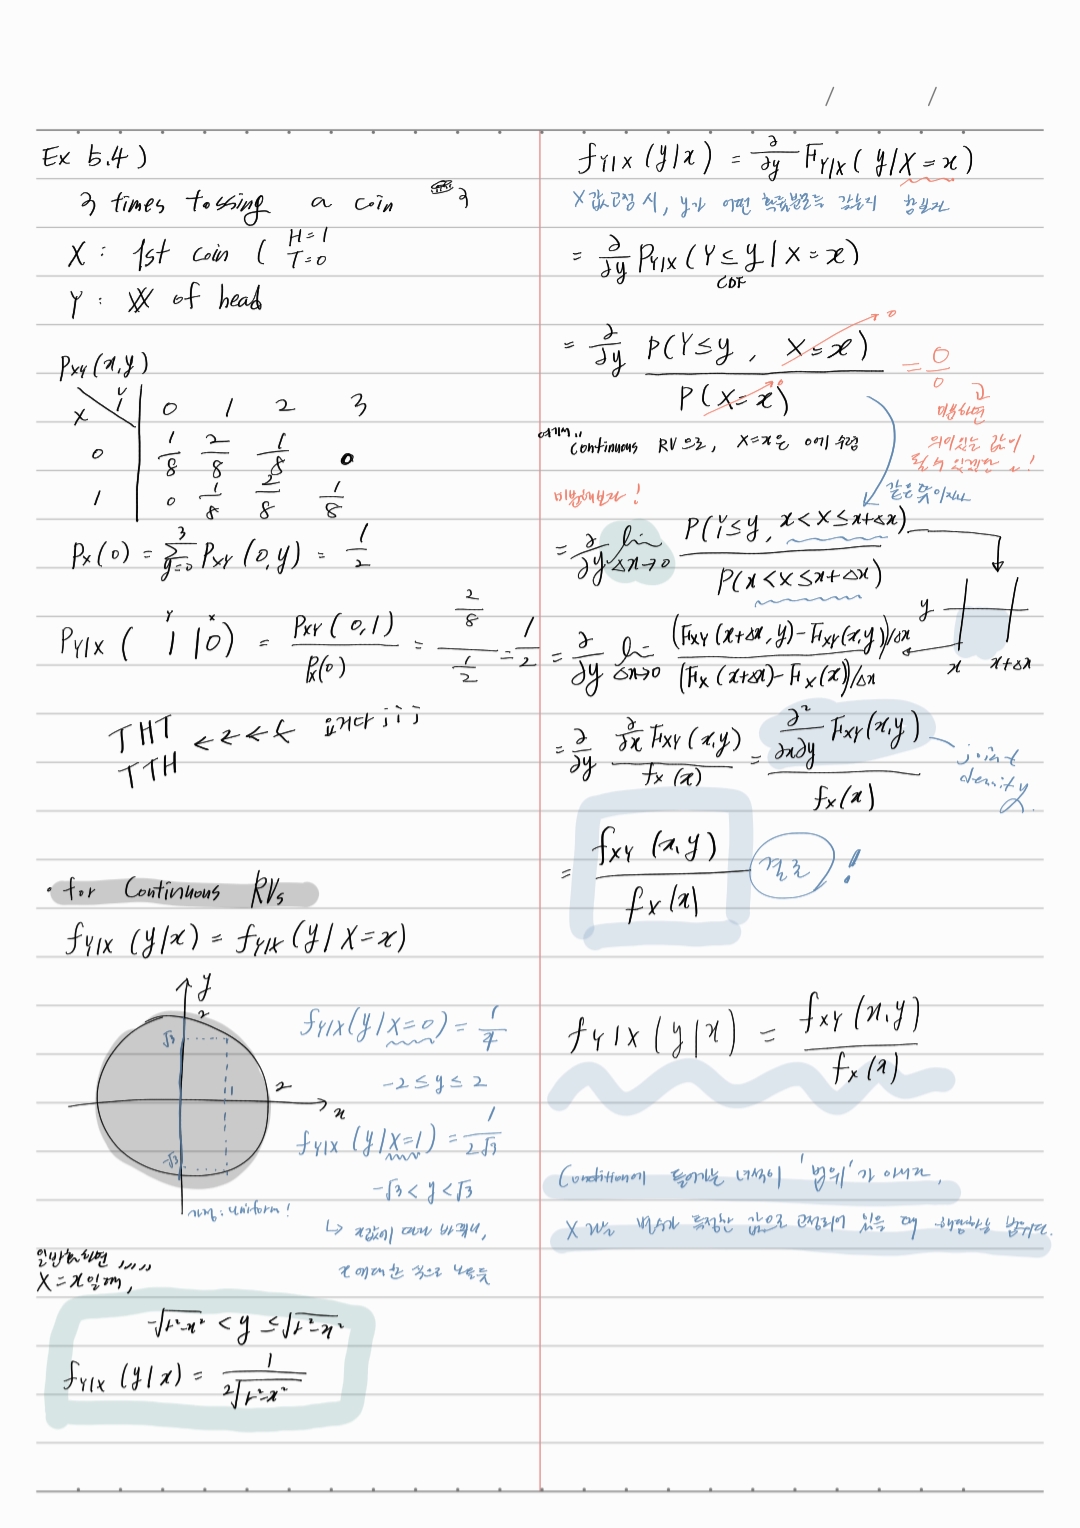 / /
Ex 5.4)
3 times tossing a coin 3
X : 1st coin ( H=1
T=0
Y : of head
P_XY(x,y)
X Y 0 1 2 3
0 1/8 2/8 1/8 0
1 0 1/8 2/8 1/8
P_X(0) = Σ_{y=0}^{3} P_XY(0,y) = 1/2
P_Y|X( 1 | 0 ) = P_XY(0,1) / P_X(0) = (2/8) / (1/2) = 1/2
Y X
THT
TTH
요거다 ;;;
· for Continuous RVs
f_Y|X(y|x) = f_Y|X(y|X=x)
y
2
√3
1
2
x
-√3
가정: uniform!
f_Y|X(y|X=0) = 1/4
-2 ≤ y ≤ 2
f_Y|X(y|X=1) = 1/(2√3)
-√3 < y < √3
↳ x값에 따라 바뀌니,
x에 대한 식으로 나오듯
일반화하면 ,,,,,
X=x일 때,
-√(r²-x²) < y ≤ √(r²-x²)
f_Y|X(y|x) = 1 / (2√(r²-x²))
f_Y|X(y|x) = ∂/∂y F_Y|X(y|X=x)
X값 고정 시, y가 어떤 확률분포를 갖는지
= ∂/∂y P_Y|X(Y≤y|X=x)
CDF
= ∂/∂y P(Y≤y, X=x) / P(X=x) = 0/0
0
0
고
미분하면
의미있는 값이
될 수 있겠단
여기서 ,,
Continuous RV으로, X=x은 0에 수렴
미분해보자!
같은 뜻이지나
= ∂/∂y lim_{Δx→0} P(Y≤y, x<X≤x+Δx) / P(x<X≤x+Δx)
y
x x+Δx
= ∂/∂y lim_{Δx→0} (F_XY(x+Δx,y)-F_XY(x,y))/Δx / (F_X(x+Δx)-F_X(x))/Δx
= ∂/∂y ∂/∂x F_XY(x,y) / f_X(x) = ∂²/∂x∂y F_XY(x,y) / f_X(x)
joint
density
= f_XY(x,y) / f_X(x)
결론 !
f_Y|X(y|x) = f_XY(x,y) / f_X(x)
Condition에 들어가는 녀석이 '범위'가 아니라,
X 라는 변수가 특정한 값으로 고정되어 있을 때